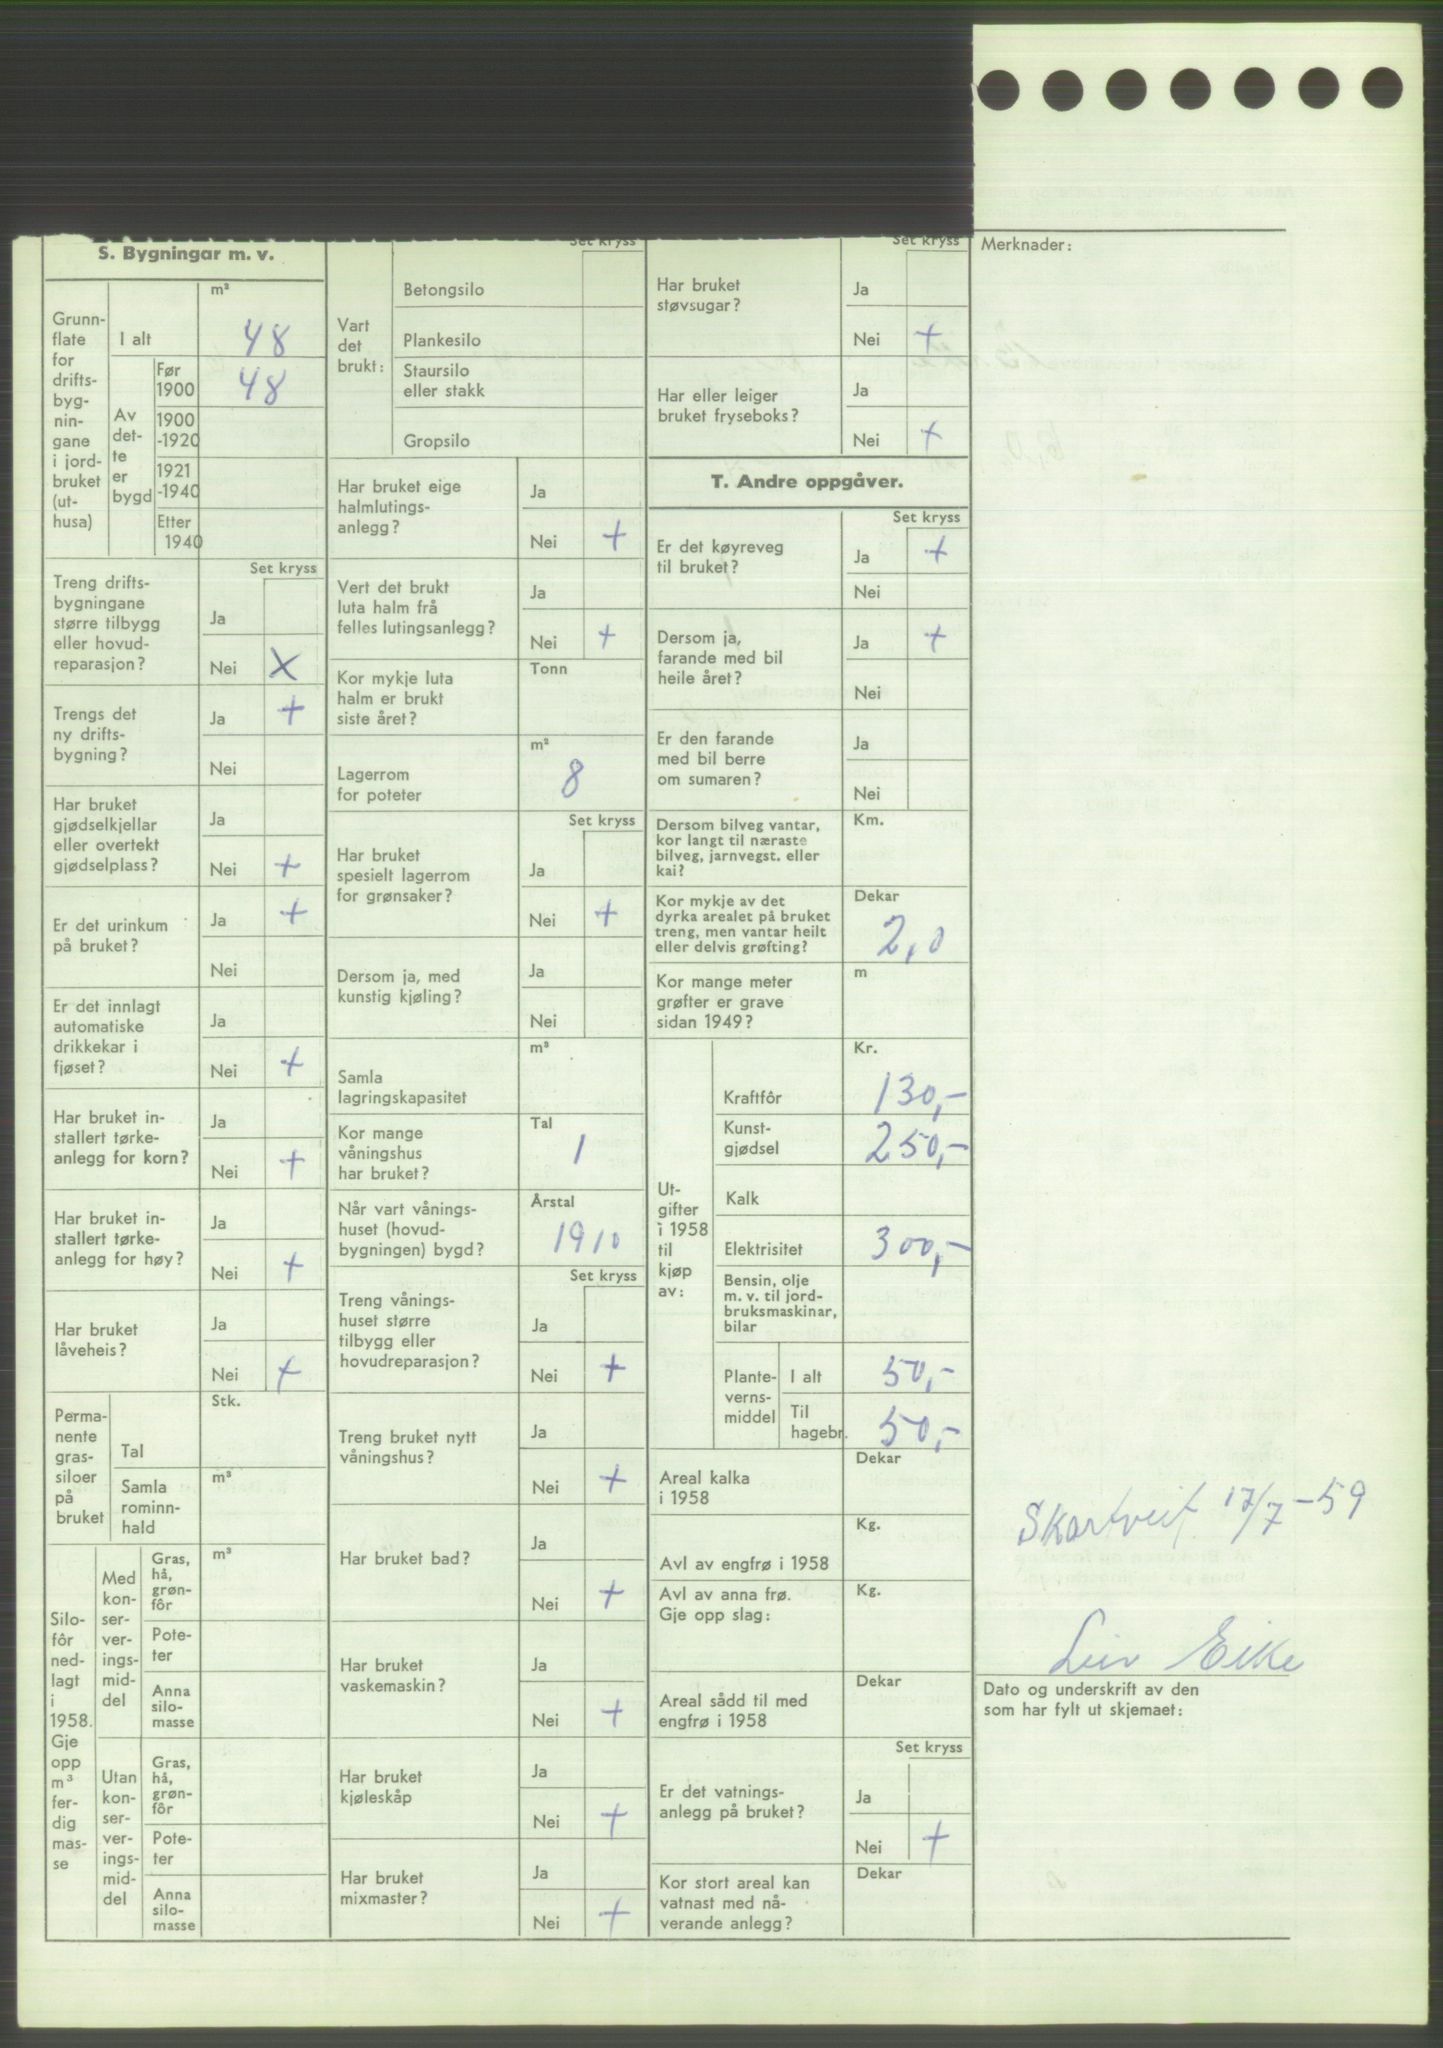 S. Bygningar m. v.
Grunn-
flate
for
drifts-
byg-
nin-
gane
i jord-
bruket
(ut-
husa)
m²
I alt 48
Av
det-
te
er
bygd
Før
1900 48
1900
-1920
1921
-1940
Etter
1940
Set kryss
Treng drifts-
bygningane
større tilbygg
eller hovud-
reparasjon?
Ja
Nei X
Trengs det
ny drifts-
bygning?
Ja +
Nei
Har bruket
gjødselkjellar
eller overtekt
gjødselplass?
Ja
Nei +
Er det urinkum
på bruket?
Ja +
Nei
Er det innlagt
automatiske
drikkekar i
fjøset?
Ja
Nei +
Har bruket in-
stallert tørke-
anlegg for korn?
Ja
Nei +
Har bruket in-
stallert tørke-
anlegg for høy?
Ja
Nei +
Har bruket
låveheis?
Ja
Nei +
Perma-
nente
gras-
siloer
på
bruket
Stk.
Tal
Samla
rominn-
hald
m³
Silo-
fôr
ned-
lagt
i
1958.
Gje
opp
m³
fer-
dig
mas-
se
Med
kon-
ser-
ver-
ings-
mid-
del
m³
Gras,
hå,
grøn-
fôr
Pote-
ter
Anna
silo-
masse
Utan
kon-
ser-
ver-
ings-
mid-
del
Gras,
hå,
grøn-
fôr
Pote-
ter
Anna
silo-
masse
Set kryss
Vart
det
brukt:
Betongsilo
Plankesilo
Staursilo
eller stakk
Gropsilo
Har bruket eige
halmlutings-
anlegg?
Ja
Nei +
Vert det brukt
luta halm frå
felles lutingsanlegg?
Ja
Nei +
Kor mykje luta
halm er brukt
siste året?
Tonn
Lagerrom
for poteter
m²
8
Set kryss
Har bruket
spesielt lagerrom
for grønsaker?
Ja
Nei +
Dersom ja, med
kunstig kjøling?
Ja
Nei
Samla
lagringskapasitet
m³
Kor mange
våningshus
har bruket?
Tal
1
Når vart vånings-
huset (hovud-
bygningen) bygd?
Årstal
1910
Set kryss
Treng vånings-
huset større
tilbygg eller
hovudreparasjon?
Ja
Nei +
Treng bruket nytt
våningshus?
Ja
Nei +
Har bruket bad?
Ja
Nei +
Har bruket
vaskemaskin?
Ja
Nei +
Har bruket
kjøleskåp
Ja
Nei +
Har bruket
mixmaster?
Ja
Nei +
Set kryss
Har bruket
støvsugar?
Ja
Nei +
Har eller leiger
bruket fryseboks?
Ja
Nei +
T. Andre oppgåver.
Set kryss
Er det køyreveg
til bruket?
Ja +
Nei
Dersom ja,
farande med bil
heile året?
Ja +
Nei
Er den farande
med bil berre
om sumaren?
Ja
Nei
Dersom bilveg vantar,
kor langt til næraste
bilveg, jarnvegst. eller
kai?
Km.
Kor mykje av det
dyrka arealet på bruket
treng, men vantar heilt
eller delvis grøfting?
Dekar
2,0
Kor mange meter
grøfter er grave
sidan 1949?
m
Ut-
gifter
i 1958
til
kjøp
av:
Kr.
Kraftfôr 130,-
Kunst-
gjødsel 250,-
Kalk
Elektrisitet 300,-
Bensin, olje
m. v. til jord-
bruksmaskinar,
bilar
Plante-
verns-
middel
I alt 50,-
Til
hagebr. 50,-
Areal kalka
i 1958
Dekar
Avl av engfrø i 1958
Kg.
Avl av anna frø.
Gje opp slag:
Kg.
Areal sådd til med
engfrø i 1958
Dekar
Set kryss
Er det vatnings-
anlegg på bruket?
Ja
Nei +
Kor stort areal kan
vatnast med nå-
verande anlegg?
Dekar
Merknader:
Skartveit 17/7-59
Leiv Eike
Dato og underskrift av den
som har fylt ut skjemaet: